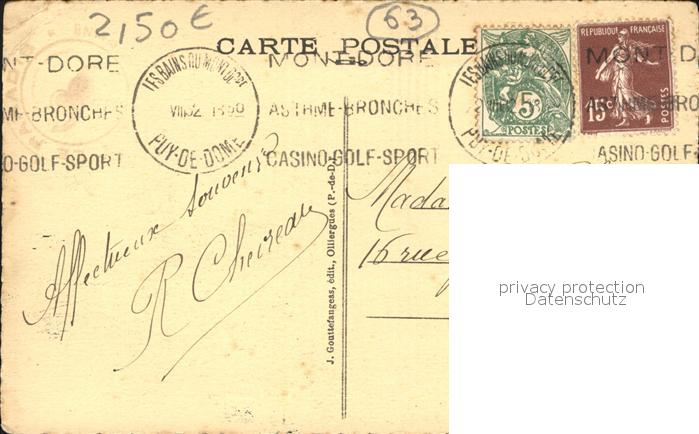 2,50€
63
CARTE POSTALE
NT-DORE
ME-BRONCHES
O-GOLF-SPORT
LES BAINS DU MONT DORE
PUY-DE-DOME
MONT-DORE
ASTHME-BRONCHES
CASINO-GOLF-SPORT
5c
POSTES
REPUBLIQUE FRANÇAISE
15c
POSTES
MONT-D
ASTHME-BRO
ASINO-GOLF-
LES BAINS DU MONT DORE
PUY-DE-DOME
Affectueux souvenir
R Cheireau
J. Gouttefangeas, édit., Olliergues (P.-de-D.)
Mada
16 rue
privacy protection
Datenschutz